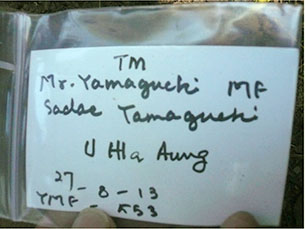 TM
Mr. Yamaguchi MF
Sadao Yamaguchi
U Hla Aung
27-8-13
YMF - 553